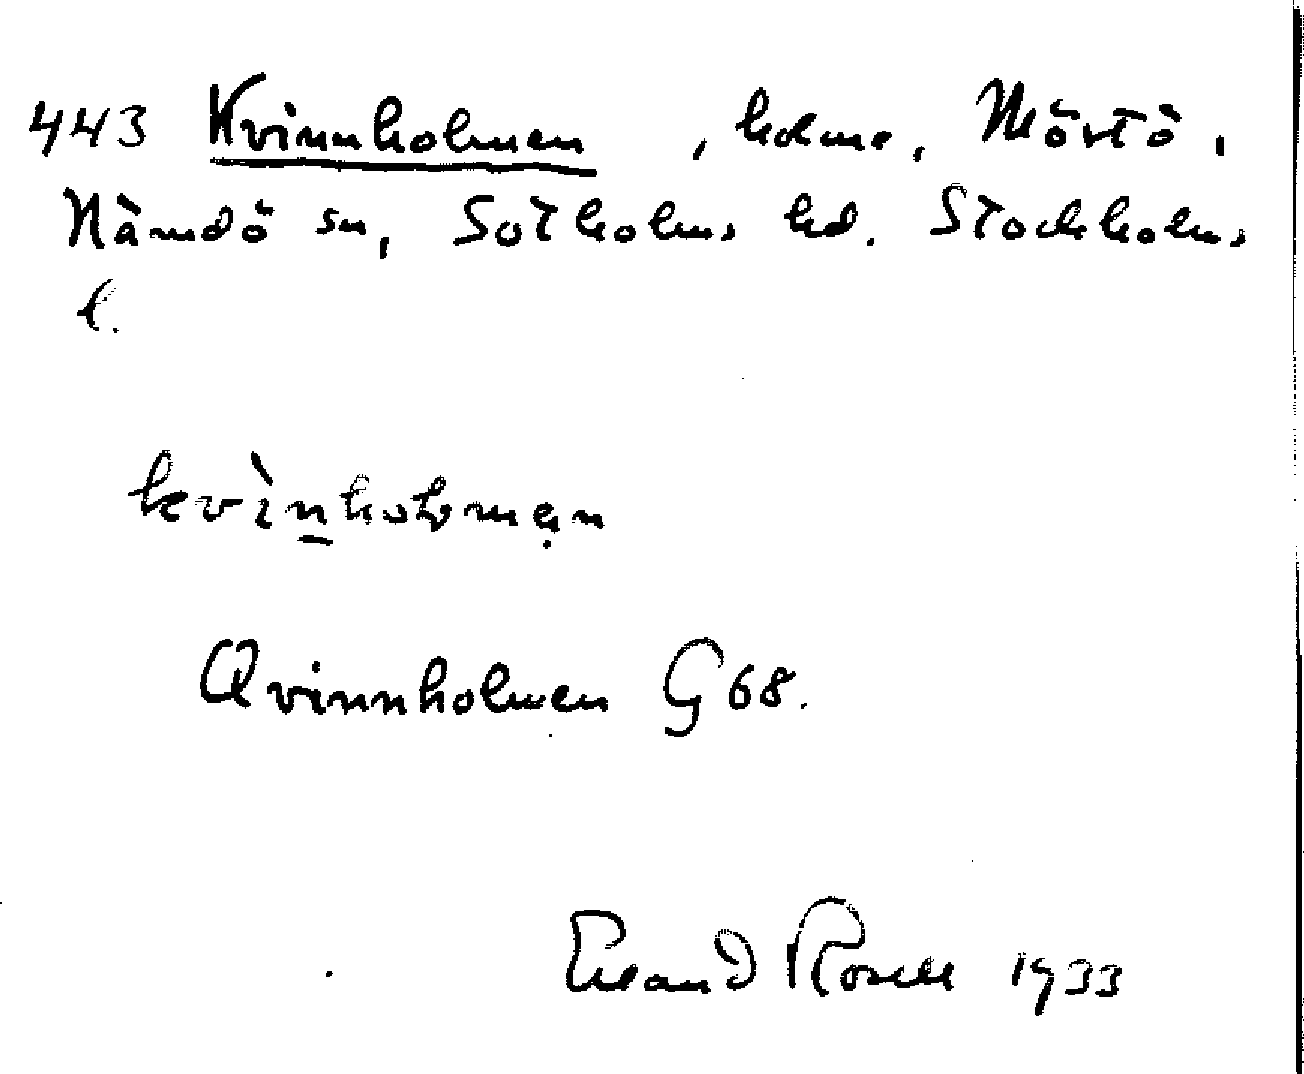 443 Kvinnholmen , holme, Mörtö,
Nämdö sn, Sotholms hd. Stockholms
l.
kvìnholmən
Qvinnholmen G 68.
Erland Rosell 1933